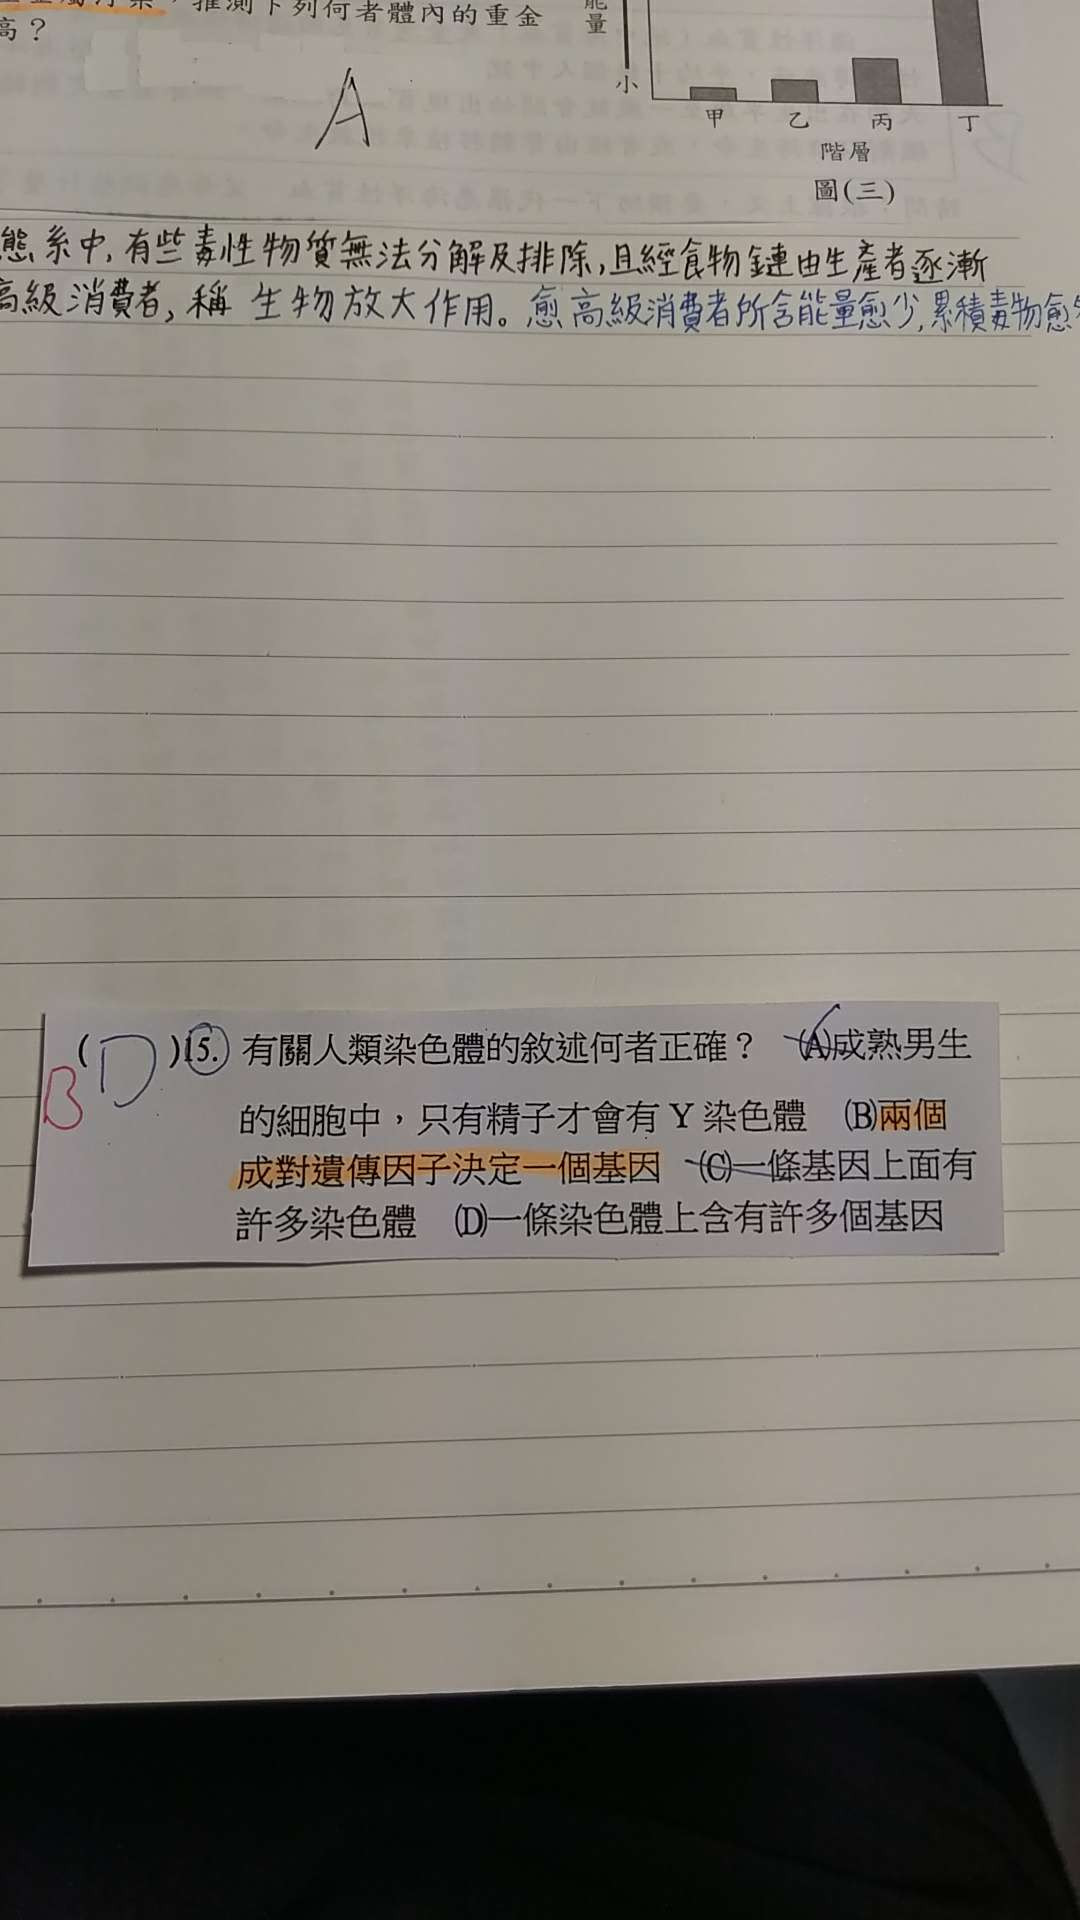 推測下列何者體內的重金
高？
能
量
小
甲 乙 丙 丁
階層
圖(三)
A
態系中,有些毒性物質無法分解及排除,且經食物鏈由生產者逐漸
高級消費者,稱 生物放大作用。愈高級消費者所含能量愈少,累積毒物愈
B
( D )15. 有關人類染色體的敘述何者正確？ (A)成熟男生
的細胞中，只有精子才會有 Y 染色體 (B)兩個
成對遺傳因子決定一個基因 (C)一條基因上面有
許多染色體 (D)一條染色體上含有許多個基因